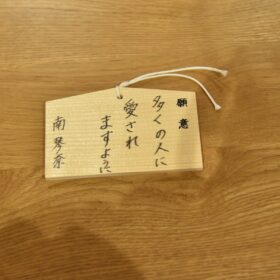 願意
多くの人に
愛され
ますように
南琴奈